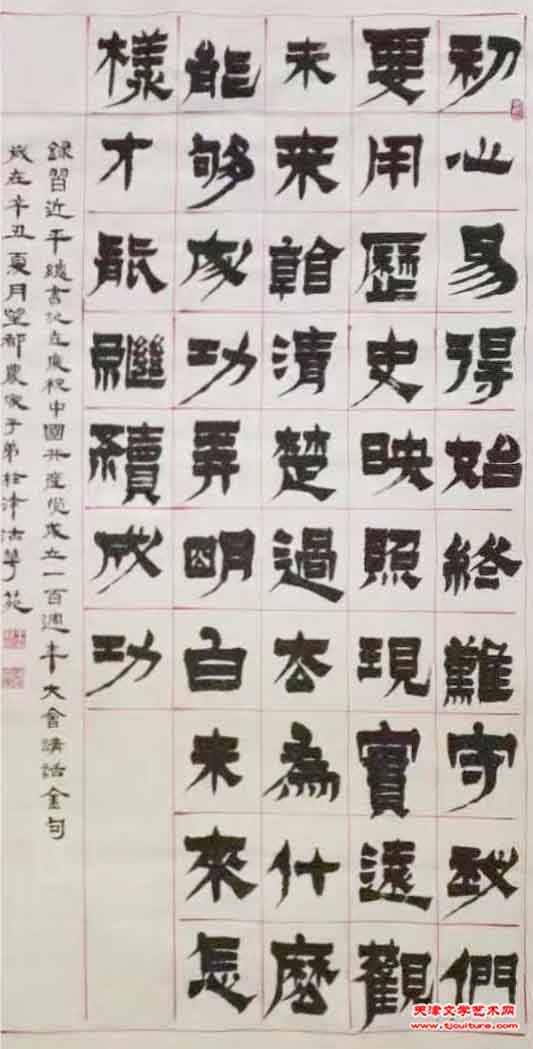 初心易得始終難守我們
要用歷史映照現實遠觀
未來看清楚過去為什麼
能够成功弄明白未來怎
樣才能繼續成功
錄習近平總書記在慶祝中國共產党成立一百週年大會講話金句
歲在辛丑夏月望都農家子弟於津沽華苑
天津文学艺术网
www.tjculture.com